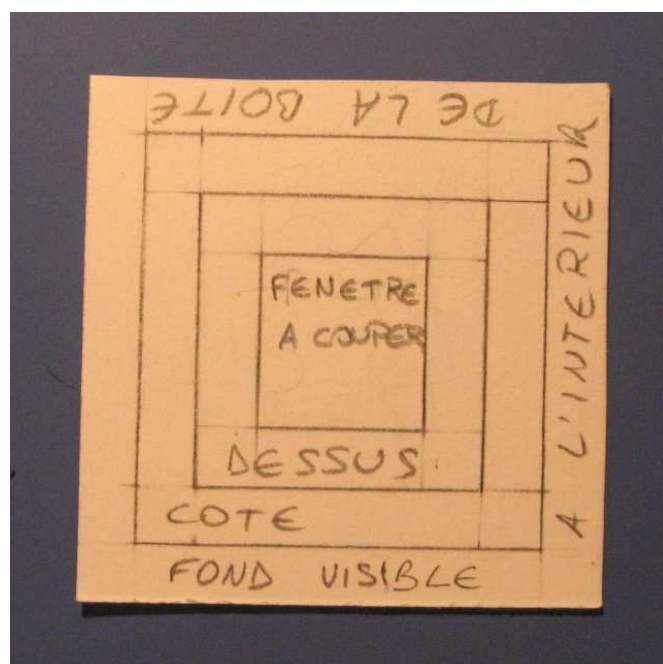 FENETRE
A COUPER
DESSUS
COTE
FOND VISIBLE
A L'INTERIEUR
DE LA BOITE